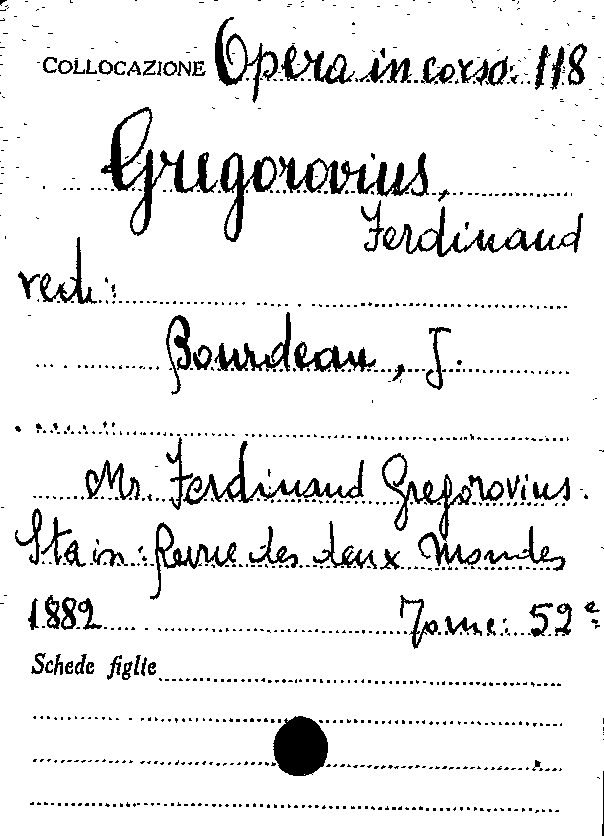 COLLOCAZIONE Opera in corso: 118
Gregorovius,
Ferdinand
vedi:
Bourdeau, J.
Mr. Ferdinand Gregorovius.
Sta in: Revue des deux Mondes
1882 Tome: 52e
Schede figlie